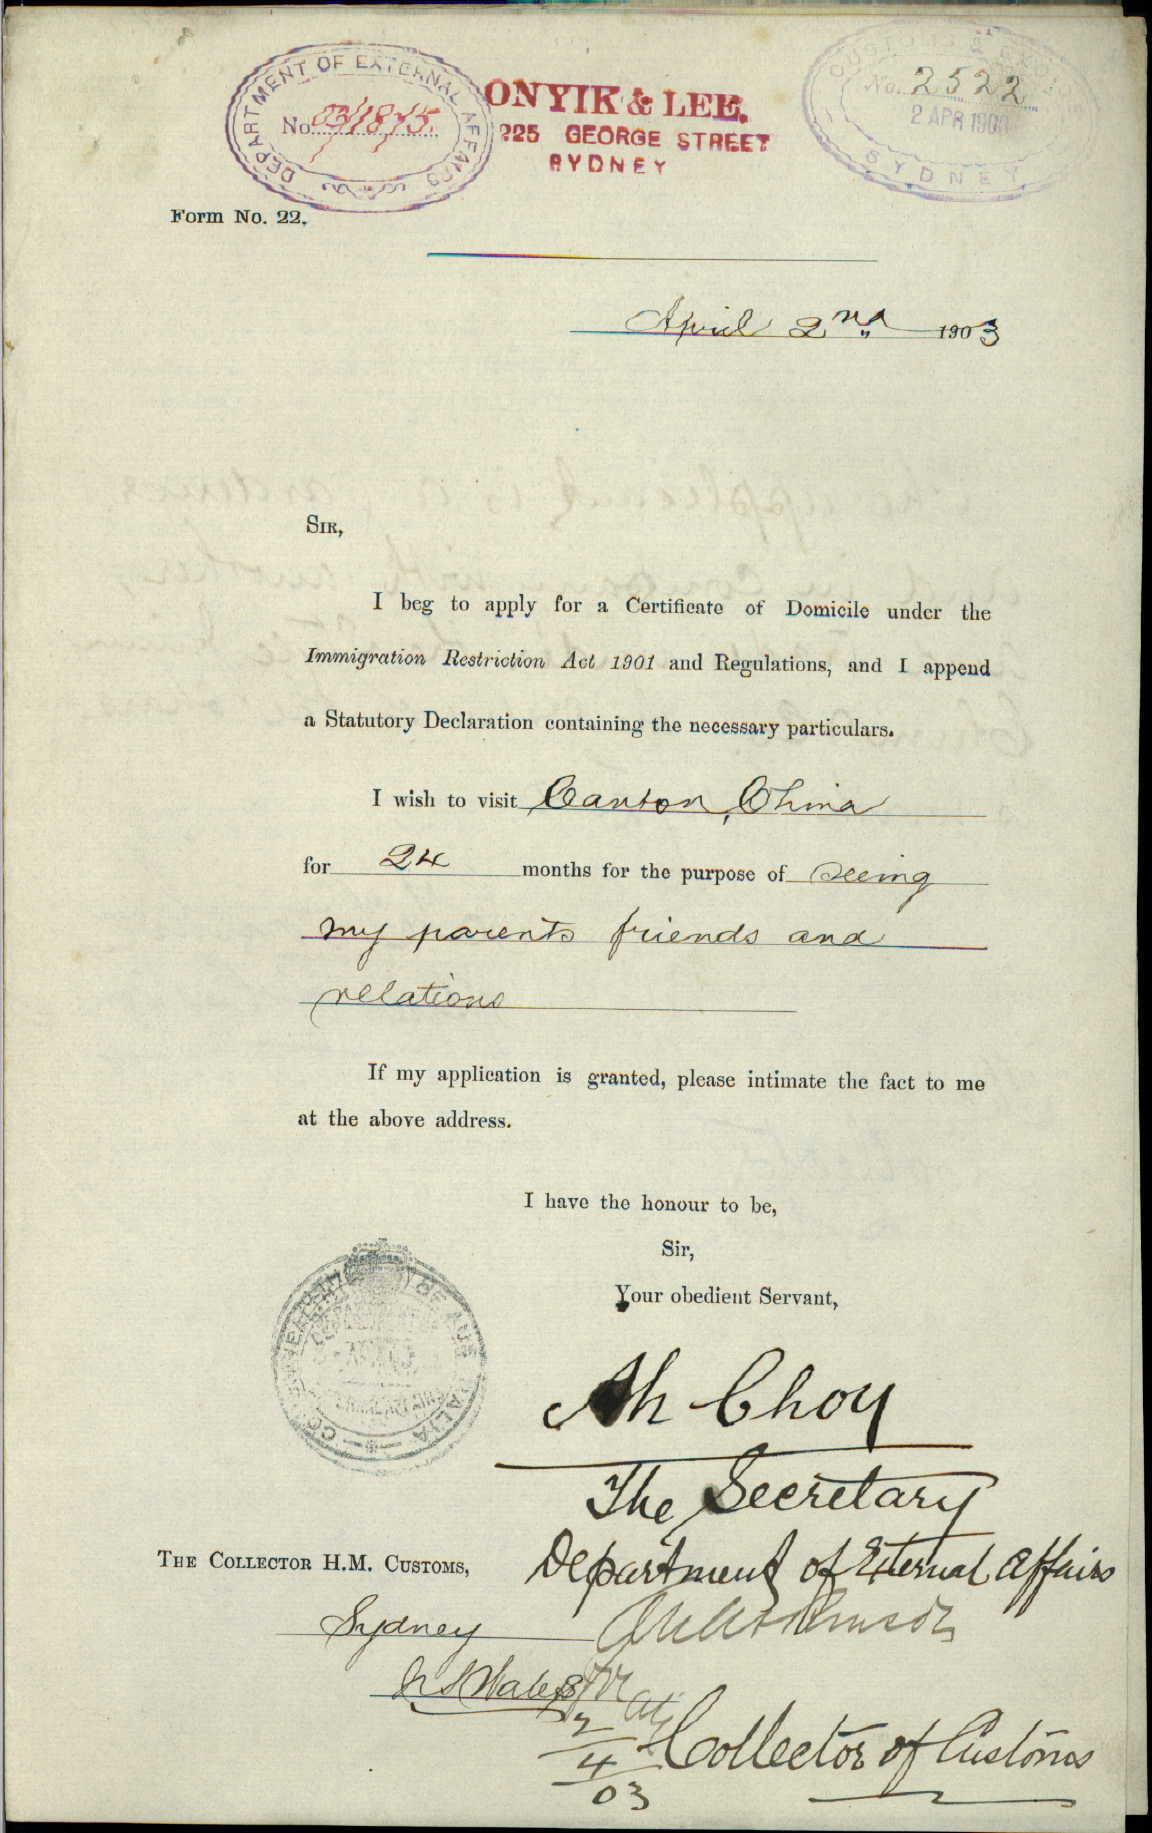 DEPARTMENT OF EXTERNAL AFFAIRS
No. 03/1875.
ONYIK & LEE.
225 GEORGE STREET
SYDNEY
CUSTOMS &
No. 2522
2 APR 1903
SYDNEY
Form No. 22.
April 2nd 1903
SIR,
I beg to apply for a Certificate of Domicile under the
Immigration Restriction Act 1901 and Regulations, and I append
a Statutory Declaration containing the necessary particulars.
I wish to visit Canton, China
for 24 months for the purpose of seeing
my parents friends and
relations
If my application is granted, please intimate the fact to me
at the above address.
I have the honour to be,
Sir,
Your obedient Servant,
COMMONWEALTH OF AUSTRALIA
Ah Choy
The Secretary
THE COLLECTOR H.M. CUSTOMS,
Department of External Affairs
Sydney
N S Wales
2
4
03
Collector of Customs